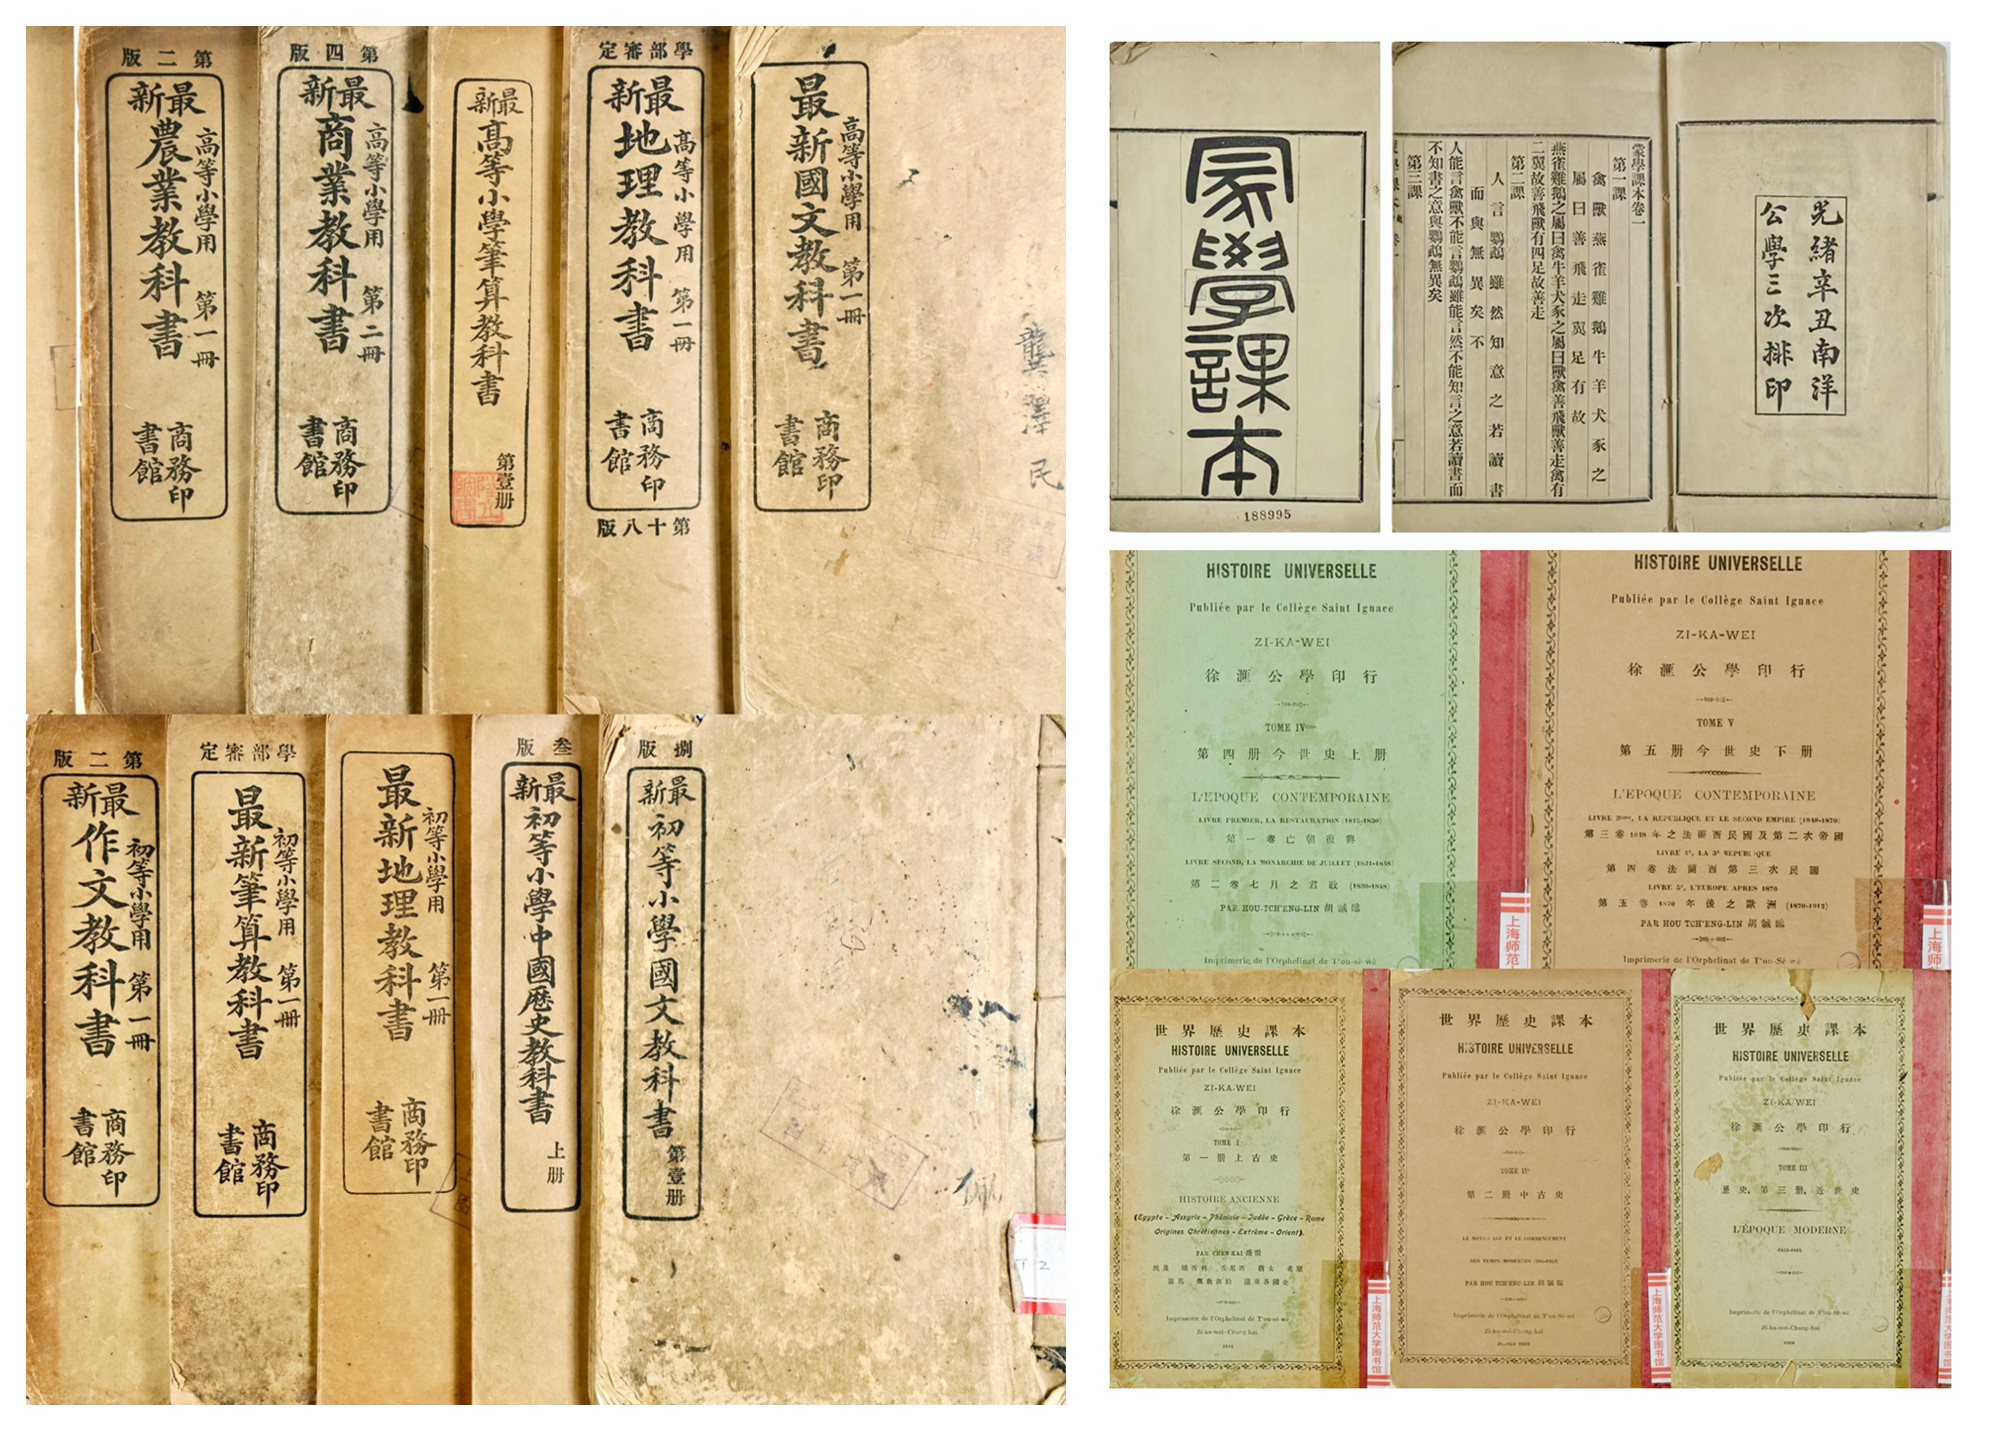 第二版
最新農業教科書
高等小學用 第一冊
商務印書館
第四版
最新商業教科書
高等小學用 第二冊
商務印書館
最新高等小學筆算教科書
第壹册
學部審定
最新地理教科書
高等小學用 第一冊
商務印書館
第十八版
最新國文教科書
高等小學用 第一冊
商務印書館
龔澤民
第二版
最新作文教科書
初等小學用 第一冊
商務印書館
學部審定
最新筆算教科書
初等小學用 第一冊
商務印書館
最新地理教科書
初等小學用 第一冊
商務印書館
叁版
最新初等小學中國歷史教科書
上册
捌版
最新初等小學國文教科書
第壹册
蒙學課本
188995
光緒辛丑南洋
公學三次排印
蒙學課本卷一
第一課
禽獸燕雀雞鵝牛羊犬豕之
屬曰善飛走翼足有故
燕雀雞鵝之屬曰禽牛羊犬豕之屬曰獸禽善飛獸善走禽有
二翼故善飛獸有四足故善走
第二課
人言鸚鵡雖然知意之若讀書
而與無異矣不
人能言禽獸不能言鸚鵡雖能言然不能知言之意若讀書而
不知書之意與鸚鵡無異矣
第三課
HISTOIRE UNIVERSELLE
Publiée par le Collège Saint Ignace
ZI-KA-WEI
徐滙公學印行
TOME IV
第四册今世史上册
L'EPOQUE CONTEMPORAINE
LIVRE PREMIER, LA RESTAURATION (1815-1830)
第一卷亡朝復興
LIVRE SECOND, LA MONARCHIE DE JUILLET (1831-1848)
第二卷七月之君政 (1830-1848)
PAR HOU-TCH'ENG-LIN 胡誠臨
Imprimerie de l'Orphelinat de T'ou-sè-wè
上海师范
HISTOIRE UNIVERSELLE
Publiée par le Collège Saint Ignace
ZI-KA-WEI
徐滙公學印行
TOME V
第五册今世史下册
L'EPOQUE CONTEMPORAINE
LIVRE 3ème, LA REPUBLIQUE ET LE SECOND EMPIRE (1848-1870)
第三卷 1848 年之法蘭西民國及第二次帝國
LIVRE 4e, LA 3e REPUBLIQUE
第四卷法蘭西第三次民國
LIVRE 5e, L'EUROPE APRES 1870
第五卷 1870 年後之歐洲 (1870-1912)
PAR HOU TCH'ENG-LIN 胡誠臨
Imprimerie de l'Orphelinat de T'ou-sè-wè
上海师范
世界歷史課本
HISTOIRE UNIVERSELLE
Publiée par le Collège Saint Ignace
ZI-KA-WEI
徐滙公學印行
TOME I
第一册上古史
HISTOIRE ANCIENNE
(Egypte - Assyrie - Phénicie - Judée - Grèce - Rome
Origines Chrétiennes - Extrême - Orient).
Imprimerie de l'Orphelinat de T'ou-sè-wè
Zi-ka-wei-Chang-hai
上海师范大学图书馆
世界歷史課本
HISTOIRE UNIVERSELLE
Publiée par le Collège Saint Ignace
ZI-KA-WEI
徐滙公學印行
TOME II
第二册中古史
LE MOYEN AGE ET LE COMMENCEMENT
DES TEMPS MODERNES
PAR HOU TCH'ENG-LIN 胡誠臨
Imprimerie de l'Orphelinat de T'ou-sè-wè
Zi-ka-wei-Chang-hai
上海师范大学图书馆
世界歷史課本
HISTOIRE UNIVERSELLE
Publiée par le Collège Saint Ignace
ZI-KA-WEI
徐滙公學印行
TOME III
歷史第三册近世史
L'ÉPOQUE MODERNE
Imprimerie de l'Orphelinat de T'ou-sè-wè
Zi-ka-wei-Chang-hai